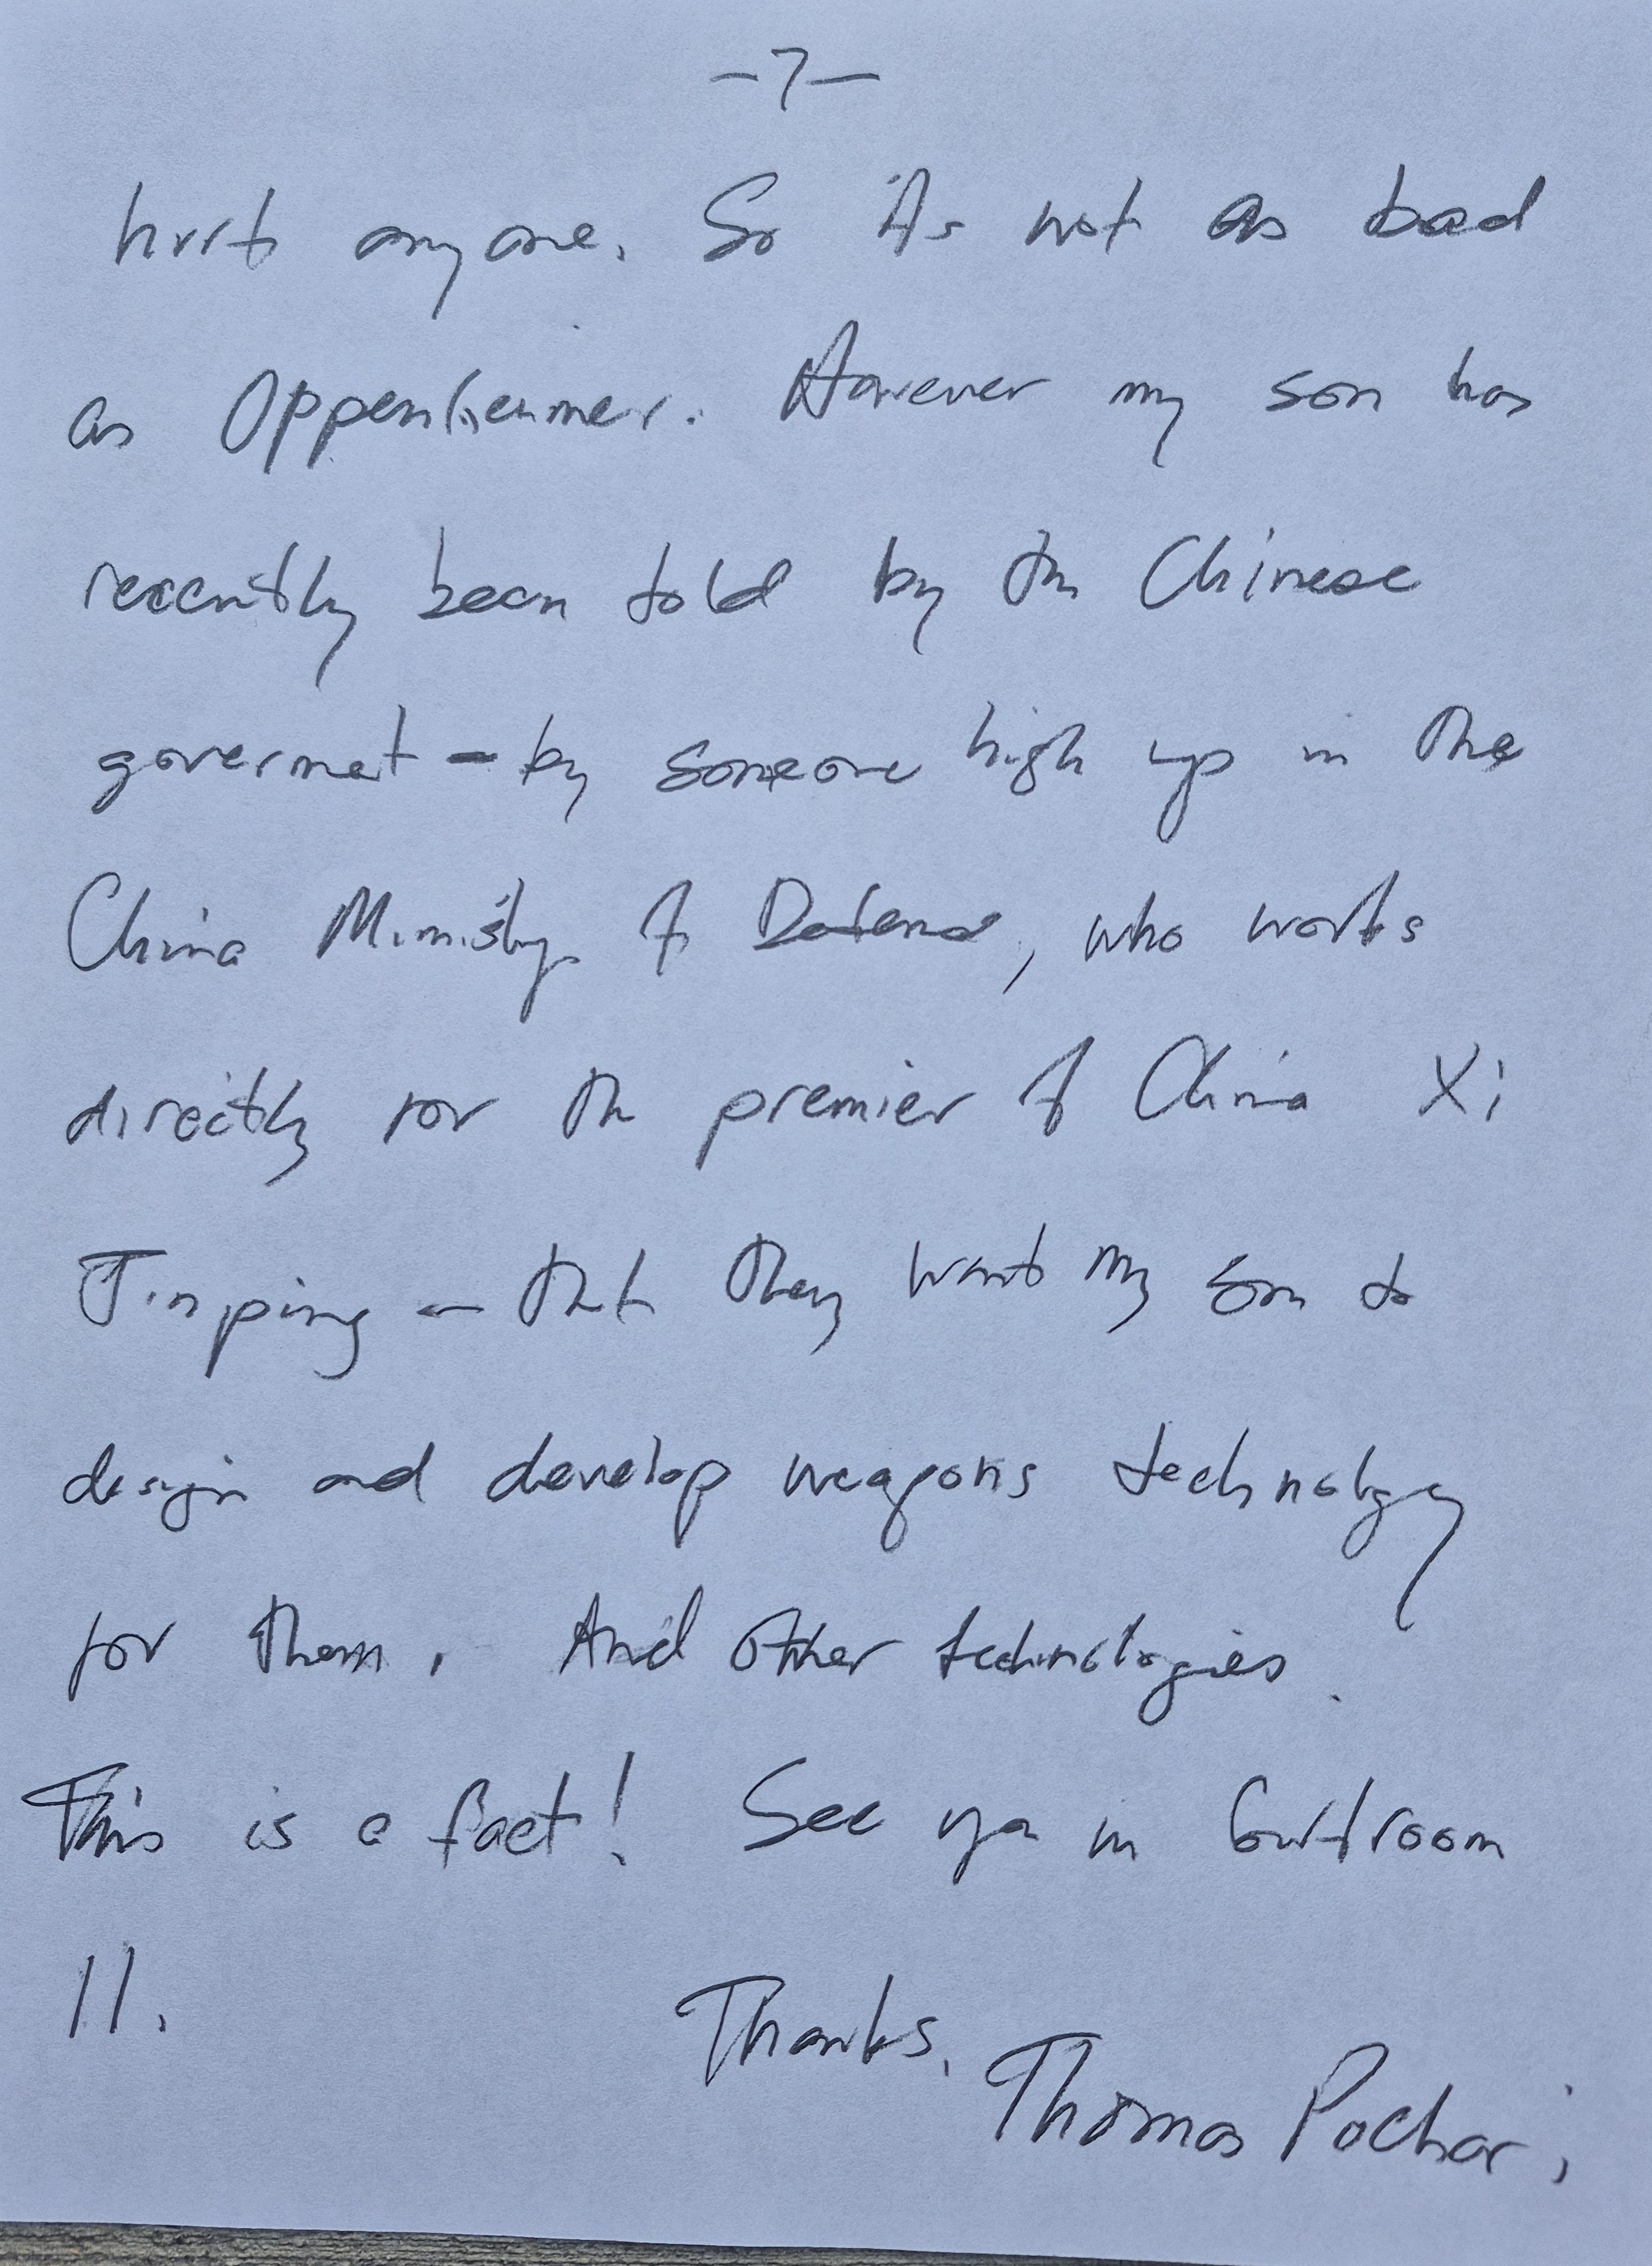 -7-
hurt anyone. So it's not as bad
as Oppenheimer. However my son has
recently been told by the Chinese
goverment - by someone high up in the
China Ministry of Defense, who works
directly for the premier of China Xi
Jinping - that they want my son to
design and develop weapons technology
for them. And other technologies.
This is a fact! See ya in Courtroom
11.
Thanks,
Thomas Pochari